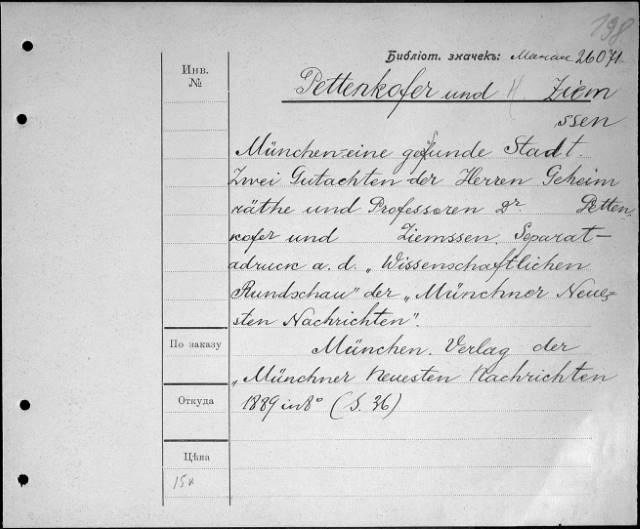 198
Библіот. значекъ: 26071.
Инв.
№
Pettenkofer und Ziem
ssen
München-eine gesunde Stadt.
Zwei Gutachten der Herren Geheim
räthe und Professoren Dr Petten
kofer und Ziemssen. Separat-
adruck a. d. „Wissenschaftlichen
Rundschau" der „Münchner Neue-
sten Nachrichten".
По заказу
München. Verlag der
„Münchner Neuesten Nachrichten
Откуда
1889 in 8° (S. 36)
Цѣна
15к